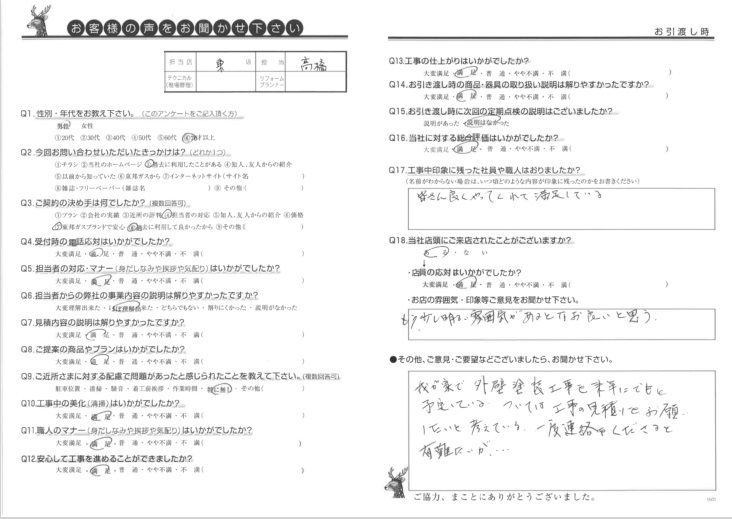 お客様の声をお聞かせ下さい
担当店 東 店 担当 高橋
テクニカル(現場管理) リフォームプランナー
Q1.性別・年代をお教え下さい。(このアンケートをご記入頂く方)
男性 女性
①20代 ②30代 ③40代 ④50代 ⑤60代 ⑥70才以上
Q2.今回お問い合わせいただいたきっかけは?(どれか1つ)
①チラシ ②当社のホームページ ③過去に利用したことがある ④知人、友人からの紹介
⑤以前から知っていた ⑥東邦ガスから ⑦インターネットサイト(サイト名 )
⑧雑誌・フリーペーパー(雑誌名 ) ⑨その他( )
Q3.ご契約の決め手は何でしたか?(複数回答可)
①プラン ②会社の実績 ③近所の評判 ④担当者の対応 ⑤知人、友人からの紹介 ⑥価格
⑦東邦ガスブランドで安心 ⑧過去に利用して良かったから ⑨その他( )
Q4.受付時の電話応対はいかがでしたか?
大変満足・満 足・普 通・やや不満・不 満( )
Q5.担当者の対応・マナー(身だしなみや挨拶や気配り)はいかがでしたか?
大変満足・満 足・普 通・やや不満・不 満( )
Q6.担当者からの弊社の事業内容の説明は解りやすかったですか?
大変理解出来た・ほぼ理解出来た・どちらでもない・解りにくかった・説明がなかった
Q7.見積内容の説明は解りやすかったですか?
大変満足・満 足・普 通・やや不満・不 満( )
Q8.ご提案の商品やプランはいかがでしたか?
大変満足・満 足・普 通・やや不満・不 満( )
Q9.ご近所さまに対する配慮で問題があったと感じられたことを教えて下さい。(複数回答可)
駐車位置・清掃・騒音・着工前挨拶・作業時間・特に無し・その他( )
Q10.工事中の美化(清掃)はいかがでしたか?
大変満足・満 足・普 通・やや不満・不 満( )
Q11.職人のマナー(身だしなみや挨拶や気配り)はいかがでしたか?
大変満足・満 足・普 通・やや不満・不 満( )
Q12.安心して工事を進めることができましたか?
大変満足・満 足・普 通・やや不満・不 満( )
お引渡し時
Q13.工事の仕上がりはいかがでしたか?
大変満足・満 足・普 通・やや不満・不 満( )
Q14.お引き渡し時の商品・器具の取り扱い説明は解りやすかったですか?
大変満足・満 足・普 通・やや不満・不 満( )
Q15.お引き渡し時に次回の定期点検の説明はございましたか?
説明があった・説明はなかった
Q16.当社に対する総合評価はいかがでしたか?
大変満足・満 足・普 通・やや不満・不 満( )
Q17.工事中印象に残った社員や職人はおりましたか?
(名前がわからない場合は、いつ頃どのような内容が印象に残ったのかをお書きください)
皆さん良くやってくれて満足している
Q18.当社店頭にご来店されたことがございますか?
ある・ない
・店員の応対はいかがでしたか?
大変満足・満 足・普 通・やや不満・不 満( )
・お店の雰囲気・印象等ご意見をお聞かせ下さい。
もう少し明るい雰囲気があるとなお良いと思う.
●その他、ご意見・ご要望などございましたら、お聞かせ下さい。
我が家で外壁塗装工事を来年にでもと
予定している. ついては工事の見積りをお願い
したいと考えている. 一度連絡 くださると
有難たいが....
ご協力、まことにありがとうございました。